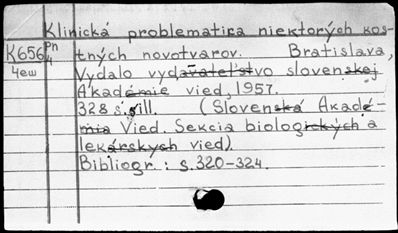 Klinická problematika niektorých kos-
K656 Pn tných novotvarov. Bratislava,
4ew 4 Vydalo vydavateľstvo slovenskej
Akadémie vied, 1957.
328 s. ill. (Slovenská Akadé-
mia Vied. Sekcia biologických a
lekárskych vied).
Bibliogr.: s. 320-324.